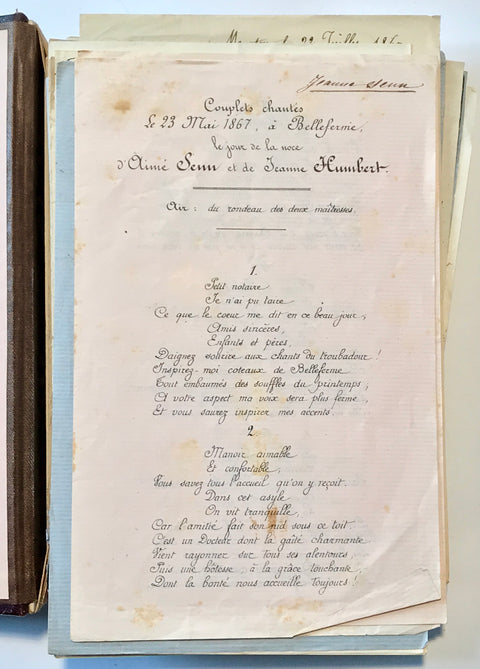 Juillet 186
Jeanne Senn
Couplets chantés
Le 23 Mai 1867, à Belleferme,
le jour de la noce
d'Aimé Senn et de Jeanne Humbert.
Air : du rondeau des deux maîtresses.
1.
Petit notaire
Je n'ai pu taire
Ce que le coeur me dit en ce beau jour;
Amis sincères,
Enfants et pères,
Daignez sourire aux chants du troubadour!
Inspirez-moi coteaux de Belleferme
Tout embaumés des souffles du printemps;
A votre aspect ma voix sera plus ferme
Et vous saurez inspirer mes accents.
2
Manoir aimable
Et confortable,
Vous savez tous l'accueil qu'on y reçoit.
Dans cet asyle
On vit tranquille,
Car l'amitié fait son nid sous ce toit.
C'est un Docteur dont la gaîté charmante
Vient rayonner sur tous ses alentours;
Puis une hôtesse, à la grâce touchante,
Dont la bonté nous accueille toujours!